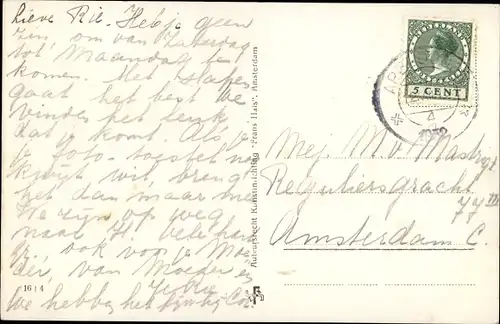 Lieve Rie. Heb je geen
zin om van Zaterdag
tot Maandag te
komen. Met slapen
gaat het best. We
vinden het leuk
dat je komt. Als je
je foto-toestel
kwijt wil, breng
het dan maar mee.
We zijn op weg
naar H.
ook voor je Moe-
der, van Moeder en
We hebben het
16 | 4
Auteursrecht Kunstinrichting "Frans Hals", Amsterdam
5 CENT
4
Mej. M. v.
Reguliersgracht
77 III
Amsterdam C.